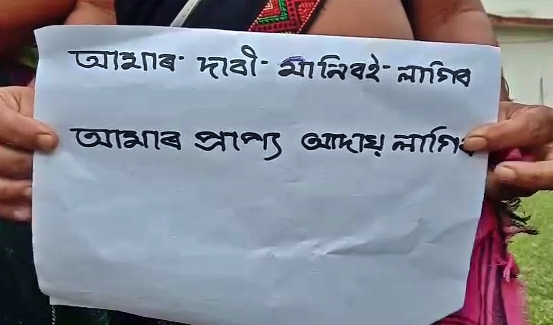 আমাৰ- দাবী- মানিবই- লাগিব
আমাৰ প্ৰাপ্য আদায় লাগিব